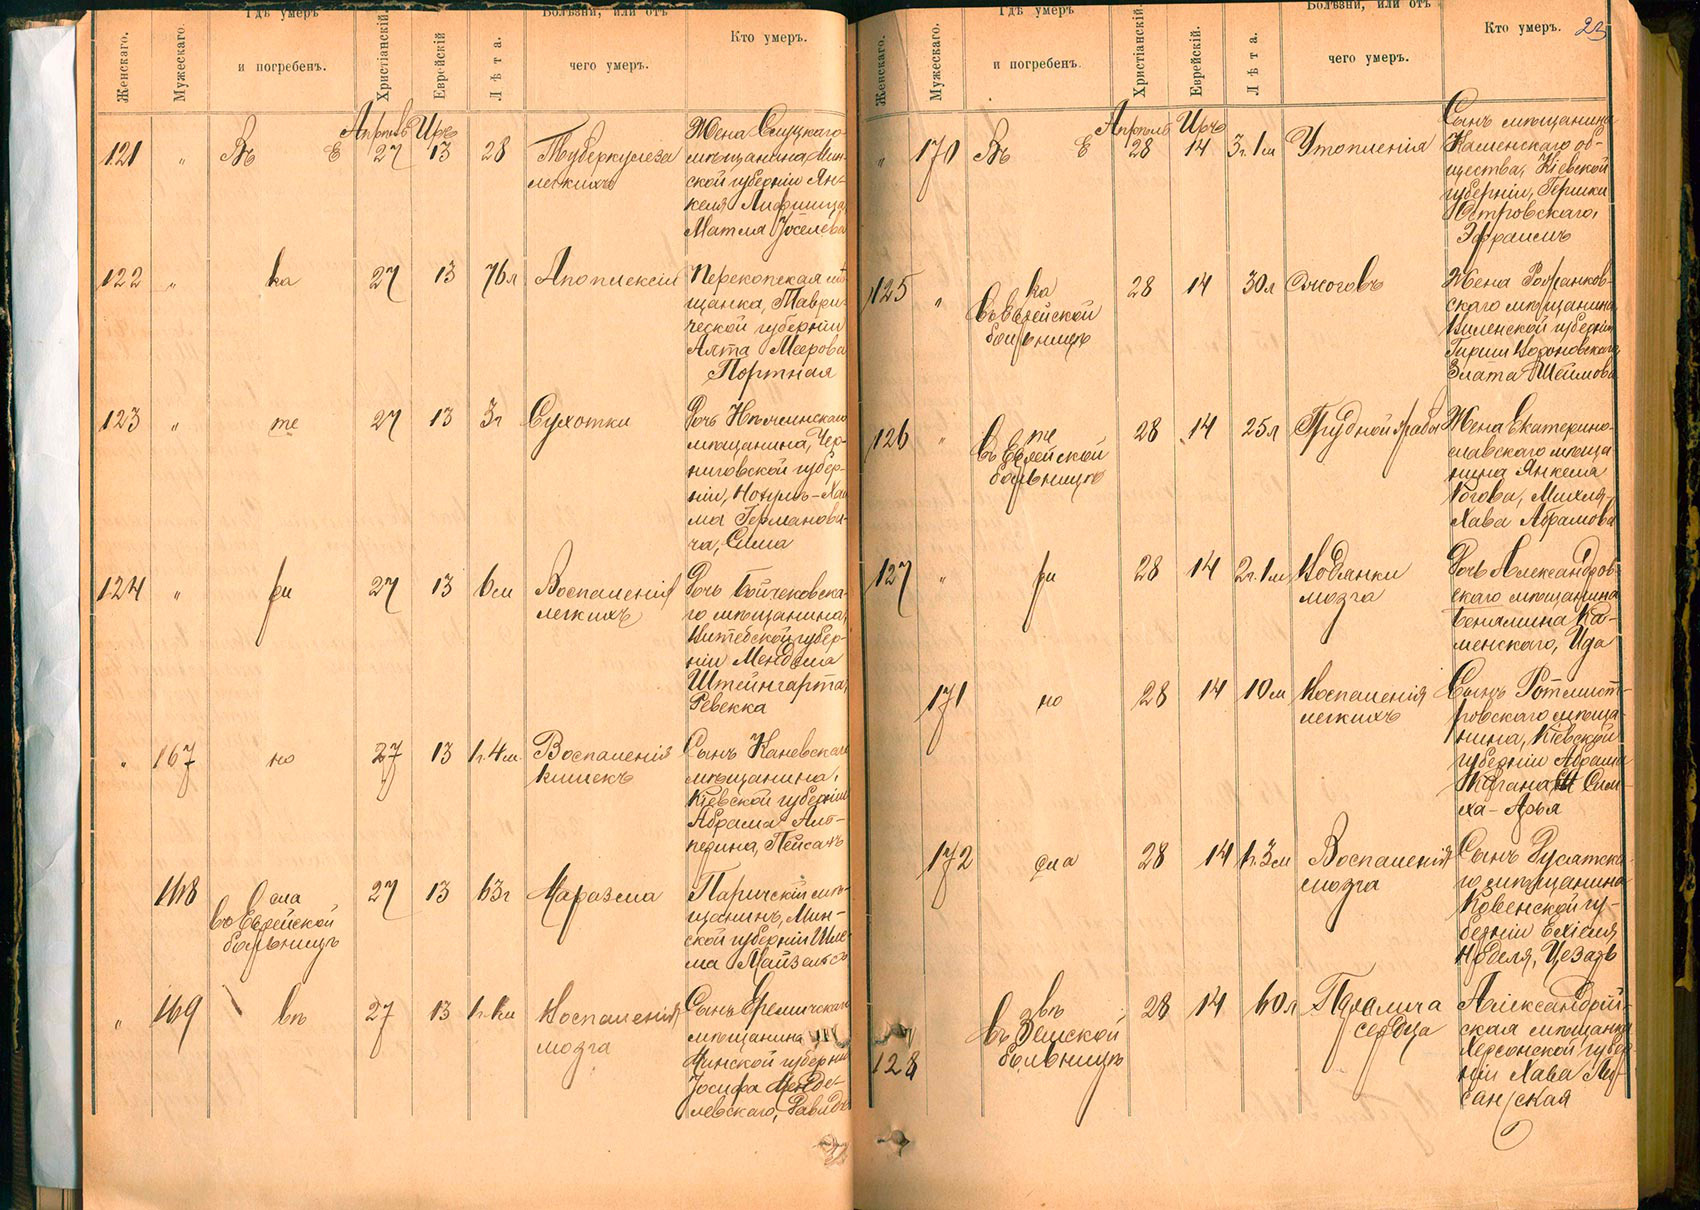 Женскаго.
Мужескаго.
Гдѣ умеръ
и погребенъ.
Христіанскій.
Еврейскій
Лѣта.
Болѣзни, или отъ
чего умеръ.
Кто умеръ.
Апрѣль Иръ
121 " Въ Е 27 13 28 Туберкулеза
легкихъ
Жена Слуцкаго
мѣщанина Мин-
ской губерніи Ян-
келя Лифшица,
Матля Іоселева
122 " ка 27 13 76л Апоплексіи
Перекопская мѣ-
щанка, Таври-
ческой губерніи
Алта Меерова
Портная
123 " те 27 13 3г Сухотки
Дочь Нѣжинскаго
мѣщанина, Чер-
ниговской губер-
ніи, Нохумъ-Хаи
ма Германови-
ча, Сима
124 " ри 27 13 6м Воспаленія
легкихъ
Дочь
го мѣщанина,
Витебской губер-
ніи Менделя
Штейнгарта,
Ревекка
" 167 но 27 13 1г.4м. Воспаленія
кишекъ
Сынъ Каневскаго
мѣщанина,
Кіевской губерніи
Абрама
Пейсахъ
168 сла 27 13 63г Маразма
въ Еврейской
больницѣ
Паричскій мѣ-
щанинъ, Мин-
ской губерніи Шле-
ма Майзельсъ
" 169 въ 27 13 Воспаленія
мозга
Сынъ
мѣщанина
Минской губерніи
Іосифа Менде-
левскаго, Давидъ
Женскаго.
Мужескаго.
Гдѣ умеръ
и погребенъ.
Христіанскій.
Еврейскій.
Лѣта.
Болѣзни, или отъ
чего умеръ.
Кто умеръ.
23
Апрѣль Иръ
" 170 Въ Е 28 14 3г.1м Утопленія
Сынъ мѣщанина
Каменскаго об-
щества, Кіевской
губерніи, Гершки
Островскаго,
Эфраимъ
125 " ка 28 14 30л Ожоговъ
въ Еврейской
больницѣ
Жена
скаго мѣщанина,
Виленской губерніи
Гирши Вороновскаго
Злата Шеймова
126 " те 28 14 25л Грудной жабы
въ Еврейской
больницѣ
Жена Екатерино-
славскаго мѣща-
нина Янкеля
Когова, Михля-
Хава Абрамова
127 " ри 28 14 2г.1м Водянки
мозга
Дочь Александров-
скаго мѣщанина
Беніамина Ка-
менскаго, Ида
171 но 28 14 10м Воспаленія
легкихъ
Сынъ Ротмист-
ровскаго мѣща-
нина, Кіевской
губерніи Абрама
Когана, Сим-
ха-Арья
172 сла 28 14 1г.3м Воспаленія
мозга
Сынъ
го мѣщанина
Ковенской гу-
берніи Ехіеля
Нобеля, Цезарь
128 въ 28 14 60л Паралича
въ Земской
больницѣ
сердца
Александрій-
ская мѣщанка
Херсонской губер-
ніи Хава Ли-
санская